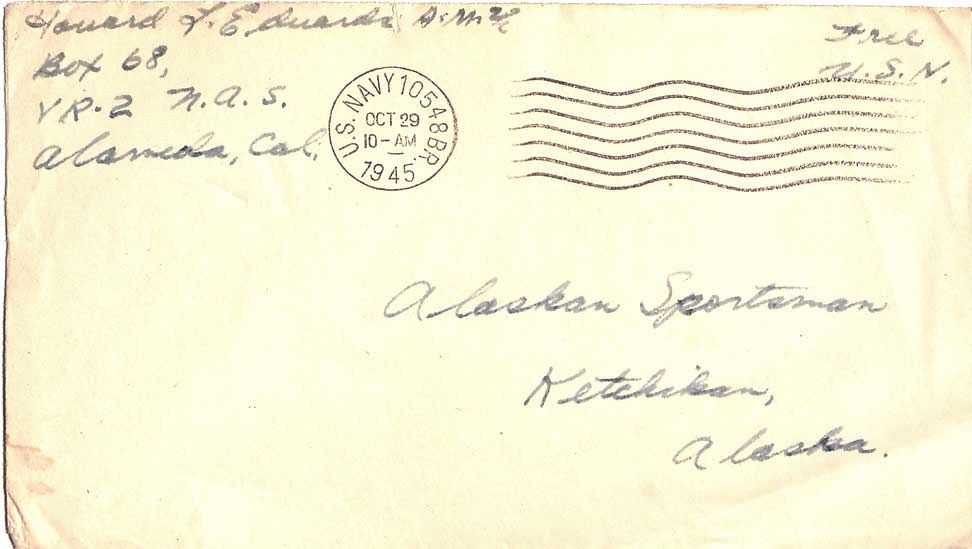 Howard L. Edwards A.M.M. 2/c
Box 68,
VR-2 N.A.S.
Alameda, Cal.
Free
U.S.N.
U.S. NAVY 10548 BR.
OCT 29
10-AM
1945
Alaskan Sportsman
Ketchikan,
Alaska.